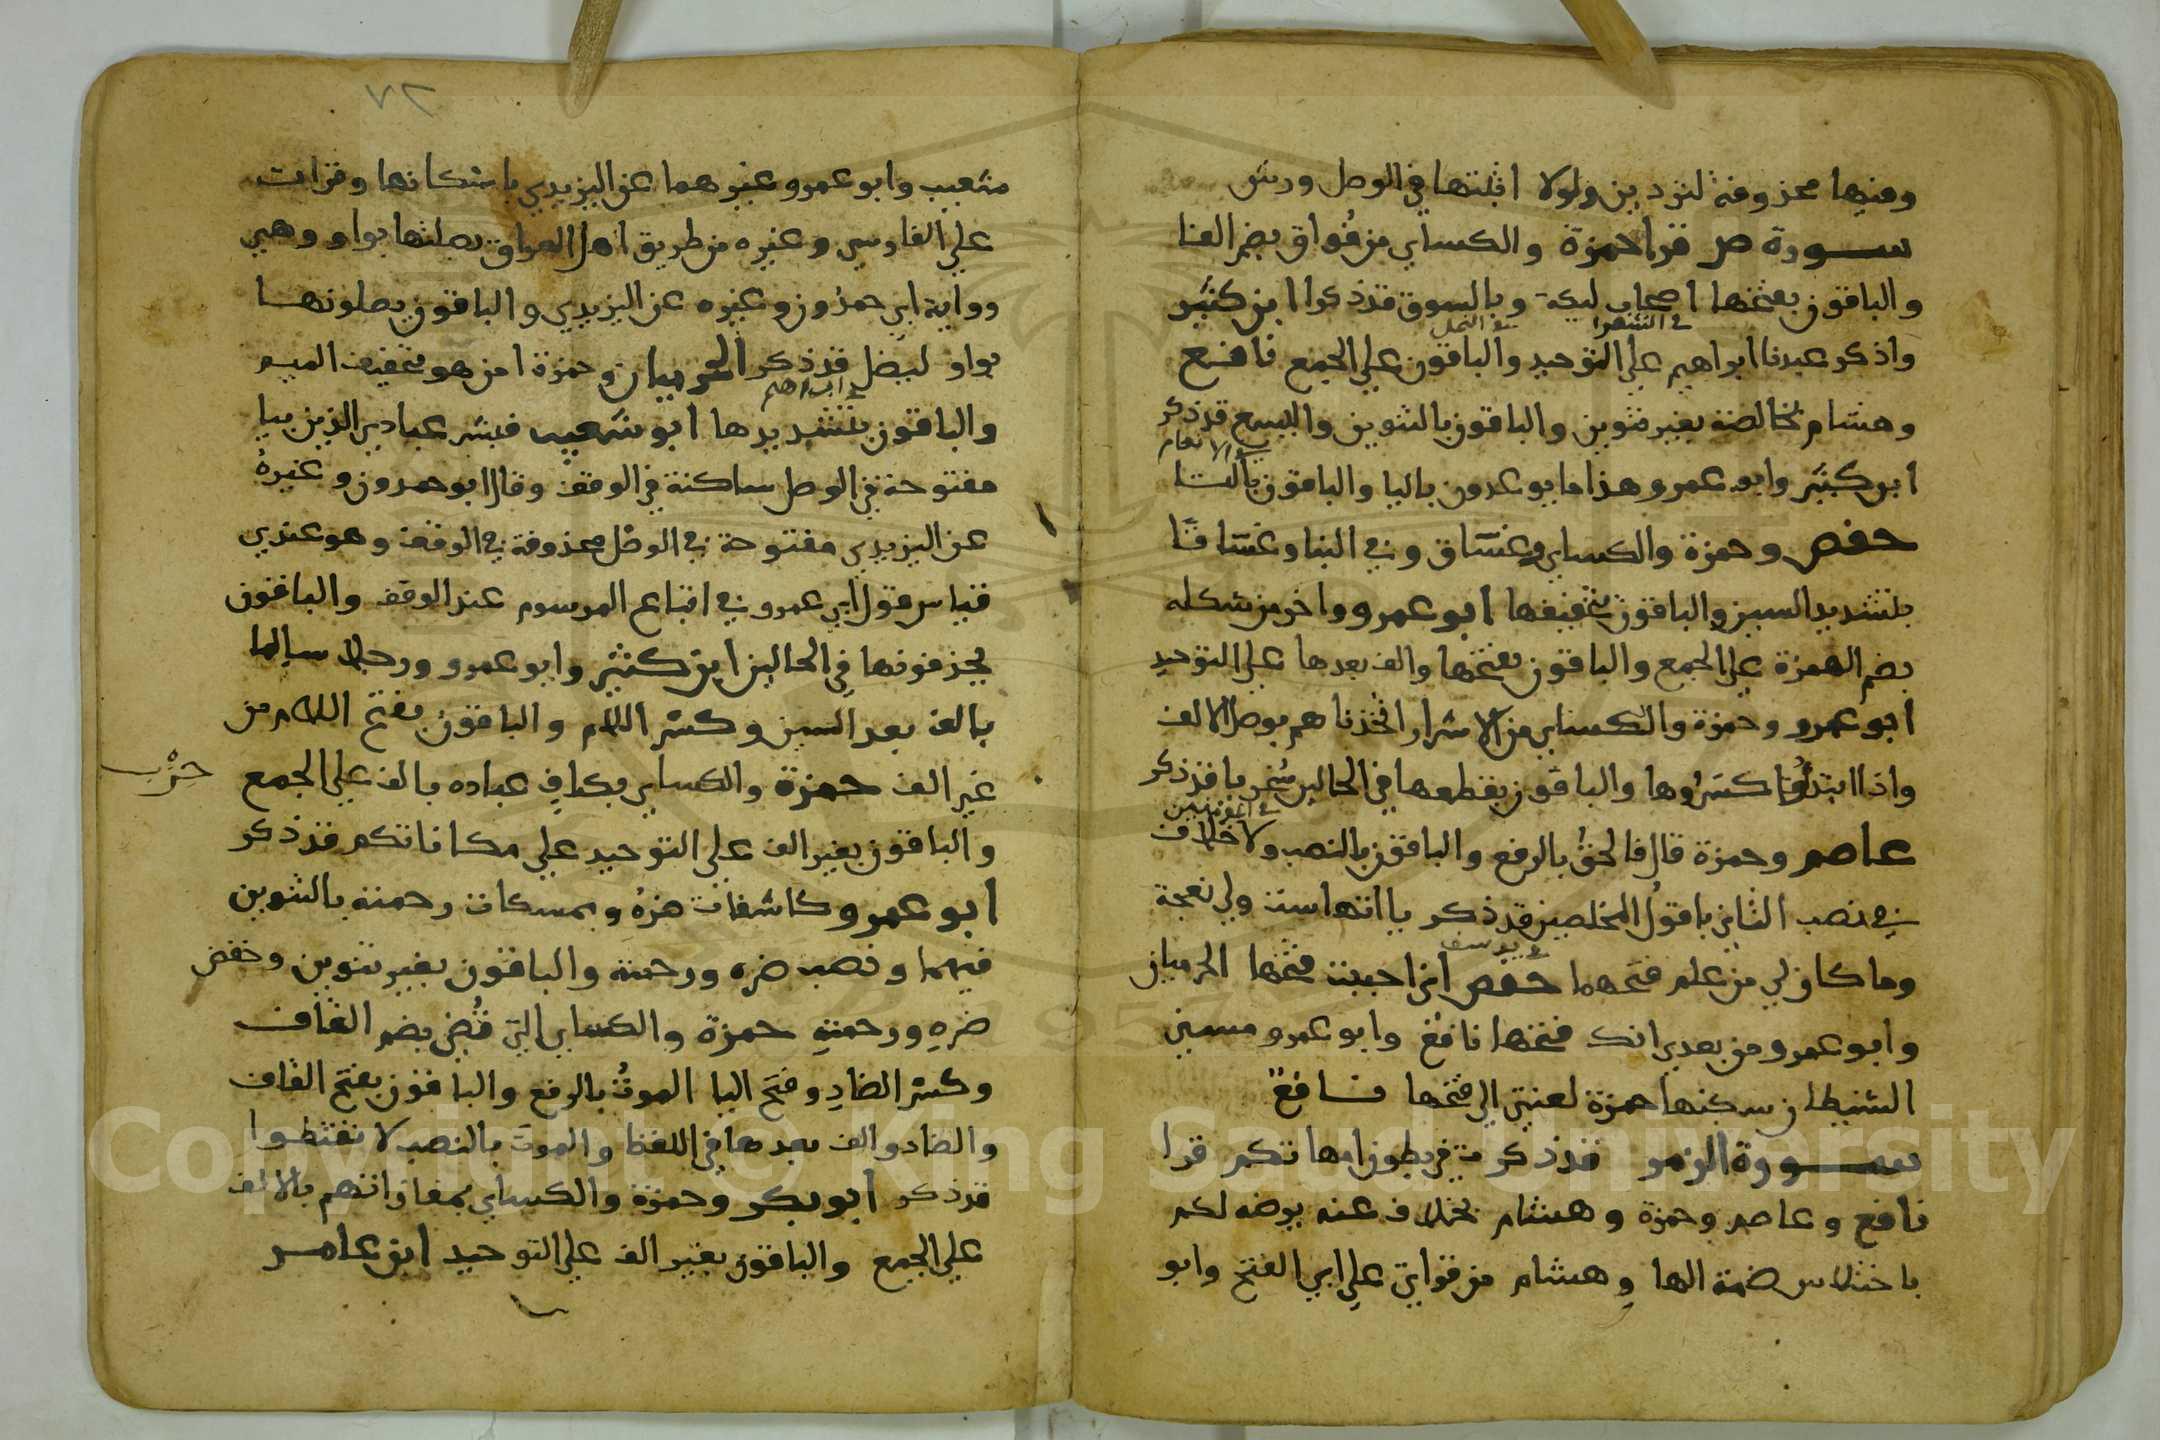 وفيها محذوفة لتردين ولولا اثبتها في الوصل ورش
سورة ص قرا حمزة والكساي من فُواق بضم الفا
والباقون بفتحها اصحاب ليكة وبالسوق قد ذكرا ابن كثير
في الشعرا في النمل
واذكر عبدنا ابراهيم علي التوحيد والباقون علي الجمع نافع
وهشام بخالصة بغير تنوين والباقون بالتنوين واليسع قد ذكر
في الانعام
ابن كثير وابو عمرو هذا ما يوعدون باليا والباقون بالتا
حفص وحمزة والكساي وغسّاق وفي النبا وغسّاقا
بتشديد السين والباقون بتخفيفها ابو عمرو واخر من شكله
بضم الهمزة علي الجمع والباقون بفتحها والف بعدها علي التوحيد
ابو عمرو وحمزة والكساي من الاشرار اتخذناهم بوصل الالف
واذا ابتدؤا كسروها والباقون بقطعها في الحالين سُخريا قد ذكر
عاصم وحمزة قال فالحقُ بالرفع والباقون بالنصب ولا خلاف
في نصب الثاني باقول المخلصين قد ذكر يااتها ست ولي نعجة
في يوسف
وما كان لي من علم فتحهما حفص اني احببت فتحها الحرميان
وابو عمرو من بعدي انك فتحها نافعٌ وابو عمرو مسني
الشيطان سكنها حمزة لعنتي الي فتحها نافعٌ
سورة الزمر قد ذكرت في بطون امهاتكم قرا
نافع وعاصم وحمزة وهشام بخلاف عنه يرضه لكم
باختلاس ضمة الها وهشام من قراتي علي ابي الفتح وابو
٧٢
شعيب وابو عمرو غيرهما عن اليزيدي باسكانها وقرات
علي الفارسي وغيره من طريق اهل العراق بصلتها بواو وهي
رواية ابي حمدون وغيره عن اليزيدي والباقون يصلونها
بواو ليضل قد ذكر الحرميان وحمزة امن هو بتخفيف الميم
في ابراهيم
والباقون بتشديدها ابو شعيب فبشر عبادي الذين بيا
مفتوحة في الوصل ساكنة في الوقف وقال ابو حمدون وغيرهُ
عن اليزيدي مفتوحة في الوصل محذوفة في الوقف وهو عندي
قياس قول ابي عمرو في اتباع المرسوم عند الوقف والباقون
يحذفونها في الحالين ابن كثير وابو عمرو ورجلا سالما
بالف بعد السين وكسر اللام والباقون بفتح اللام من
غير الف حمزة والكساي بكاف عباده بالف علي الجمع
حزب
والباقون بغير الف علي التوحيد علي مكاناتكم قد ذكر
ابو عمرو كاشفات ضره وممسكات رحمته بالتنوين
فيهما ونصب ضره ورحمته والباقون بغير تنوين وخفض
ضرهِ ورحمتهِ حمزة والكساي التي قُضي بضم القاف
وكسر الضادِ وفتح اليا الموتُ بالرفع والباقون بفتح القاف
والضاد والف بعدها في اللفظ والموتَ بالنصب لا تقنطوا
قد ذكر ابو بكر وحمزة والكساي بمفازاتهم بالالف
علي الجمع والباقون بغير الف علي التوحيد ابن عامر
Copyright © King Saud University